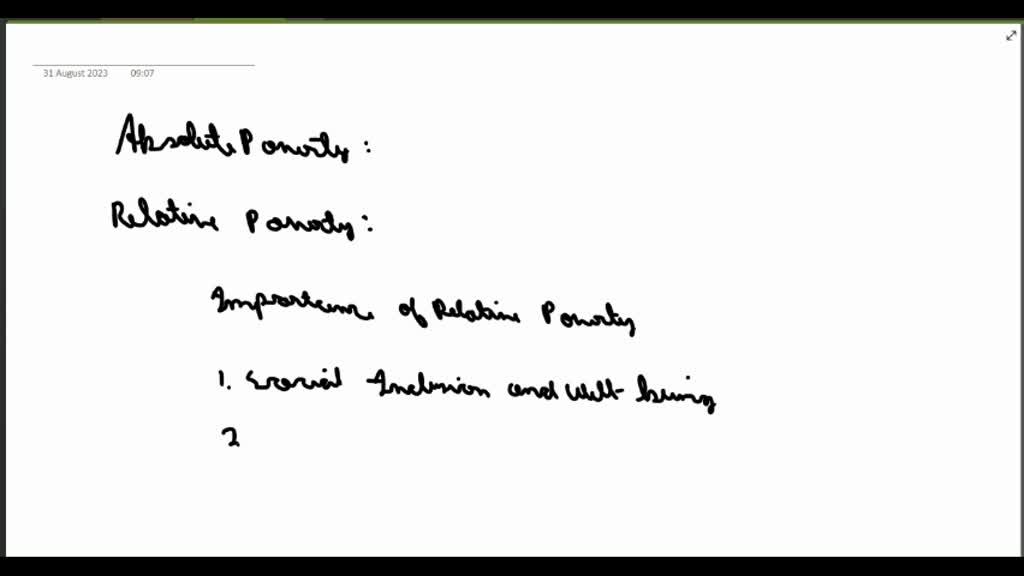 31 August 2023 09:07
Absolute Poverty:
Relative Poverty:
Importance of Relative Poverty
1. Social Inclusion and Well-being
2